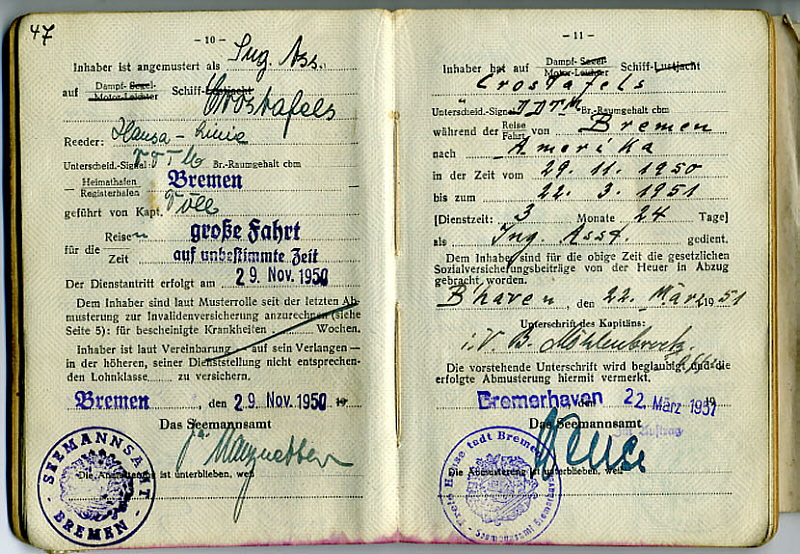 47
— 10 —
Inhaber ist angemustert als Ing. Ass.
auf Dampf- Segel- Schiff-Lustjacht Crostafels
Motor-Leichter
Reeder: Hansa-Linie
Unterscheid.-Signal: Br.-Raumgehalt cbm
Heimathafen
Registerhafen Bremen
geführt von Kapt.
Reisen große Fahrt
für die
Zeit auf unbestimmte Zeit
Der Dienstantritt erfolgt am 29. Nov. 1950
Dem Inhaber sind laut Musterrolle seit der letzten Ab-
musterung zur Invalidenversicherung anzurechnen (siehe
Seite 5): für bescheinigte Krankheiten ........ Wochen.
Inhaber ist laut Vereinbarung — auf sein Verlangen —
in der höheren, seiner Dienststellung nicht entsprechen-
den Lohnklasse ........ zu versichern.
Bremen, den 29. Nov. 1950 19
Das Seemannsamt
Die Anmusterung ist unterblieben, weil
SEEMANNSAMT
BREMEN
— 11 —
Inhaber hat auf Dampf- Segel- Schiff-Lustjacht
Motor-Leichter
Crostafels
Unterscheid.-Signal DDTM Br.-Raumgehalt cbm
während der Reise von Bremen
Fahrt
nach Amerika
in der Zeit vom 29. 11. 1950
bis zum 22. 3. 1951
[Dienstzeit: 3 Monate 24 Tage]
als Ing. Asst gedient.
Dem Inhaber sind für die obige Zeit die gesetzlichen
Sozialversicherungsbeiträge von der Heuer in Abzug
gebracht worden.
B'haven, den 22. März 1951
Unterschrift des Kapitäns:
i.V. B.
Die vorstehende Unterschrift wird beglaubigt und die
erfolgte Abmusterung hiermit vermerkt.
Bremerhaven 22. März 1951
Das Seemannsamt
Im Auftrag
Die Abmusterung ist unterblieben, weil